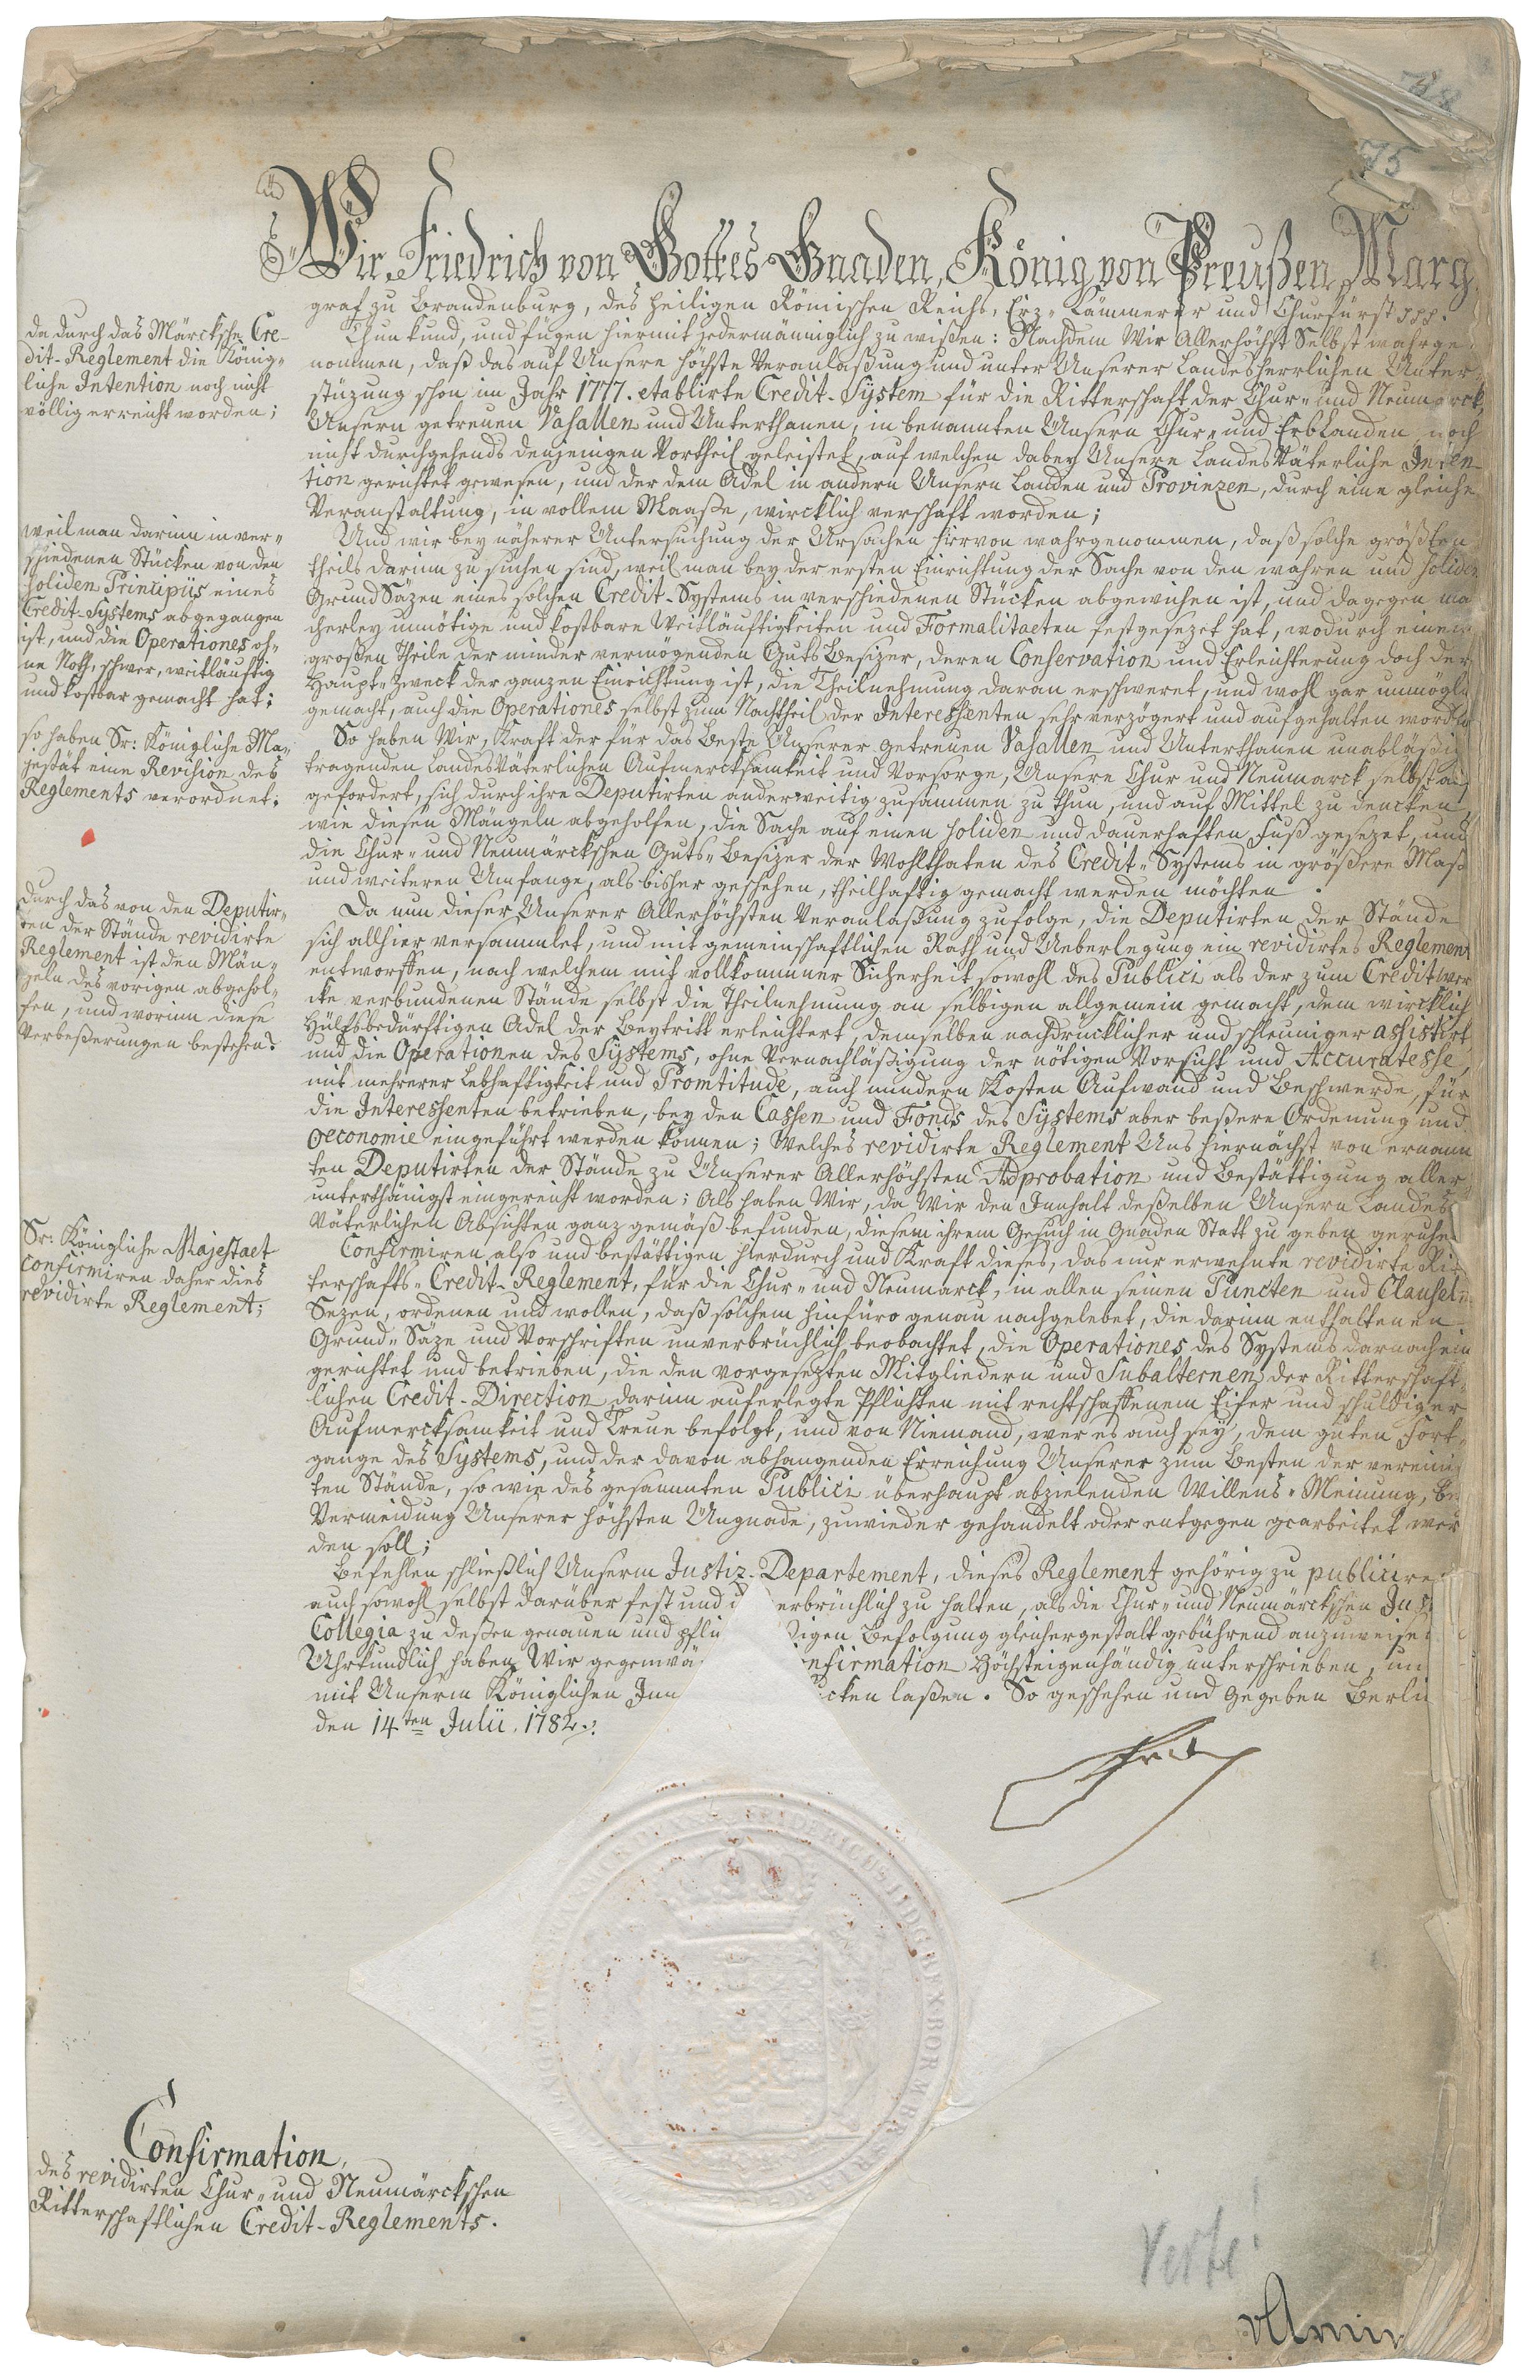 78
75
Wir Friedrich von Gottes Gnaden, König von Preußen, Marg
graf zu Brandenburg, des Heiligen Römischen Reichs, Erz-Cämmerer und Churfürst ppp.
Thun kund, und fügen hiermit jedermänniglich zu wißen: Nachdem Wir Allerhöchst Selbst wahrge
nommen, daß das auf Unsere höchste Veranlaßung und unter Unserer Landesherrlichen Unter
stüzung schon im Jahr 1777. etablirte Credit-System für die Ritterschaft der Chur- und Neumarck,
Unsern getreuen Vasallen und Unterthanen, in benannten Unsern Chur- und Erblanden noch
nicht durchgehends denjenigen Vortheil geleistet, auf welchen dabey Unsere LandesVäterliche Inten
tion gerichtet gewesen, und der dem Adel in andern Unsern Landen und Provinzen, durch eine gleiche
Veranstaltung, in vollem Maaße, wircklich verschaft worden;
Und wir bey näherer Untersuchung der Ursachen hiervon wahrgenommen, daß solche größten
theils darinn zu suchen sind, weil man bey der ersten Einrichtung der Sache von den wahren und soliden
GrundSäzen eines solchen Credit-Systems in verschiedenen Stücken abgewichen ist, und dagegen ma
cherley unnötige und kostbare Weitläuftigkeiten und Formalitaeten festgesezet hat, wodurch einem
großen Theile der minder vermögenden GutsBesizer, deren Conservation und Erleichterung doch der
Haupt-Zweck der ganzen Einrichtung ist, die Theilnehmung daran erschweret, und wohl gar unmögli
gemacht, auch die Operationes selbst zum Nachtheil der Interessenten sehr verzögert und aufgehalten worden
So haben Wir, Kraft der für das Beste Unserer getreuen Vasallen und Unterthanen unabläßig
tragenden LandesVäterlichen Aufmercksamkeit und Vorsorge, Unsere Chur und Neumarck selbst auf
gefordert, sich durch ihre Deputirten anderweitig zusammen zu thun, und auf Mittel zu dencken
wie diesen Mängeln abgeholfen, die Sache auf einen soliden und dauerhaften Fuß gesezet, und
die Chur- und Neumärckschen Guts-Besizer der Wohlthaten des Credit-Systems in größere Maß
und weiteren Umfange, als bisher geschehen, theilhaftig gemacht werden möchten.
Da nun dieser Unserer Allerhöchsten Veranlaßung zufolge, die Deputirten der Stände
sich allhier versammlet, und mit gemeinschaftlichen Rath und Ueberlegung ein revidirtes Reglement
entworffen, nach welchem mit vollkommner Sicherheit sowohl des Publici als der zum Creditwer
cke verbundenen Stände selbst die Theilnehmung an selbigen allgemein gemacht, dem wircklich
Hülfsbedürftigen Adel der Beytritt erleichtert, demselben nachdrücklicher und schleuniger assistirt
und die Operationen des Systems, ohne Vernachläßigung der nötigen Vorsicht und Accuratesse,
mit mehrerer Lebhaftigkeit und Promtitude, auch mindern Kosten Aufwand und Beschwerde, für
die Interessenten betrieben, bey den Cassen und Fonds des Systems aber beßere Ordenung und
Oeconomie eingeführt werden können; Welches revidirte Reglement Uns hiernächst von ernann
ten Deputirten der Stände zu Unserer Allerhöchsten Adprobation und Bestättigung aller
unterthänigst eingereicht worden; Als haben Wir, da Wir den Innhalt deßelben Unsern Landes
Väterlichen Absichten ganz gemäß befunden, diesem ihrem Gesuch in Gnaden Statt zu geben geruhe
Confirmiren also und bestättigen hierdurch und Kraft dieses, das nur erwehnte revidirte Rit
terschafts-Credit-Reglement, für die Chur- und Neumarck, in allen seinen Puncten und Clauseln
Sezen, ordenen und wollen, daß solchem hinfüro genau nachgelebet, die darinn enthaltenen
Grund-Säze und Vorschriften unverbrüchlich beobachtet, die Operationes des Systems darnach ein
gerichtet und betrieben, die den vorgesezten Mitgliedern und Subalternen der Ritterschaft
lichen Credit-Direction darinn auferlegte Pflichten mit rechtschaffenem Eifer und schuldiger
Aufmercksamkeit und Treue befolgt, und von Niemand, wer es auch sey, dem guten Fort
gange des Systems, und der davon abhangenden Erreichung Unserer zum Besten der vereinig
ten Stände, so wie des gesammten Publici überhaupt abzielenden Willens-Meinung, be
Vermeidung Unserer höchsten Ungnade, zuwieder gehandelt oder entgegen gearbeitet wer
den soll;
Befehlen schließlich Unserm Justiz-Departement, dieses Reglement gehörig zu publicire
auch sowohl selbst darüber fest und u erbrüchlich zu halten, als die Chur- und Neumärckschen Jus
Collegia zu deßen genauen und pfli igen Befolgung gleichergestalt gebührend anzuweise
Uhrkundlich haben Wir gegenwä nfirmation Höchsteigenhändig unterschrieben, un
mit Unserm Königlichen Inn ucken laßen. So geschehen und gegeben Berli
den 14ten Julii. 1782.
Frd
da durch das Märcksche Cre-
dit-Reglement die König-
liche Intention noch nicht
völlig erreicht worden;
weil man darinn in ver-
schiedenen Stücken von den
soliden Principiis eines
Credit-Systems abgegangen
ist, und die Operationes oh-
ne Noth, schwer, weitläuftig
und kostbar gemacht hat;
so haben Sr: Königliche Ma-
jestät eine Revision des
Reglements verordnet;
durch das von den Deputir-
ten der Stände revidirte
Reglement ist den Män-
geln des vorigen abgehol-
fen, und worinn diese
Verbeßerungen bestehen?
Sr: Königliche Majestaet
confirmiren daher dies
revidirte Reglement;
FRIDERICUS II D G REX BOR M BR
Confirmation,
des revidirten Chur- und Neumärckschen
Ritterschaftlichen Credit-Reglements.
verte!
vArnim